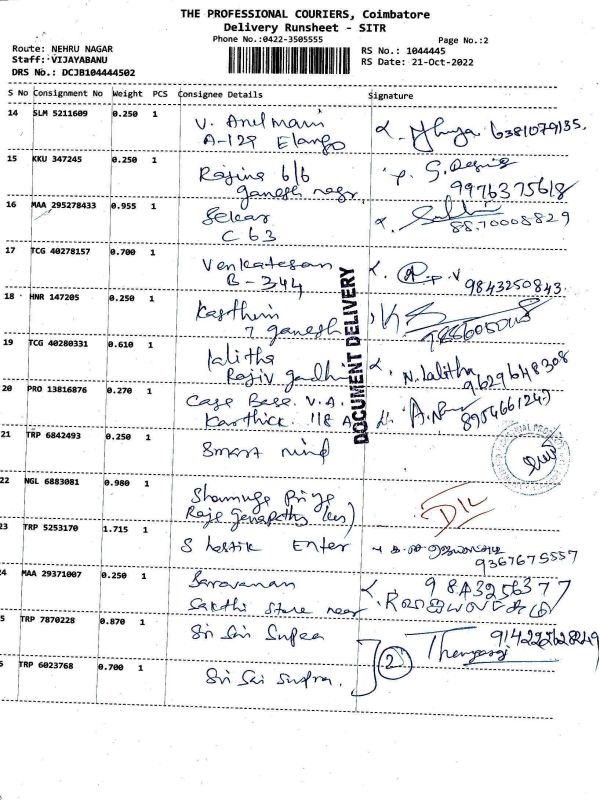 THE PROFESSIONAL COURIERS, Coimbatore
Delivery Runsheet - SITR
Phone No.:0422-3505555
Page No.:2
Route: NEHRU NAGAR
RS No.: 1044445
Staff: VIJAYABANU
RS Date: 21-Oct-2022
DRS No.: DCJB104444502
S No Consignment No Weight PCS Consignee Details Signature
14 SLM 5211609 0.250 1 V. Anil mani 6381079135.
A-129 Elango
15 KKU 347245 0.250 1 Rajina 6/6 S.
ganesh nagar 9976375618
16 MAA 295278433 0.955 1 Sekar
C 63 88.70008829
17 TCG 40278157 0.700 1 Venkatesan
B-344 9843250843.
18 HNR 147205 0.250 1 Karthim
7 ganesh
19 TCG 40280331 0.610 1 Lalitha N. Lalitha
Rajiv gandhi 9629648308
20 PRO 13816876 0.270 1 Case Base. V.A.
Karthick 118 A
DOCUMENT DELIVERY
21 TRP 6842493 0.250 1 Smart mind
22 NGL 6883081 0.980 1 Shanmuga Priya
D/L
23 TRP 5253170 1.715 1 Enter
9367675557
24 MAA 29371007 0.250 1 Saravanan
Sakthi Store near
5 TRP 7870228 0.870 1 Sri Sai Supra
2
6 TRP 6023768 0.700 1 Sri Sai Supra.